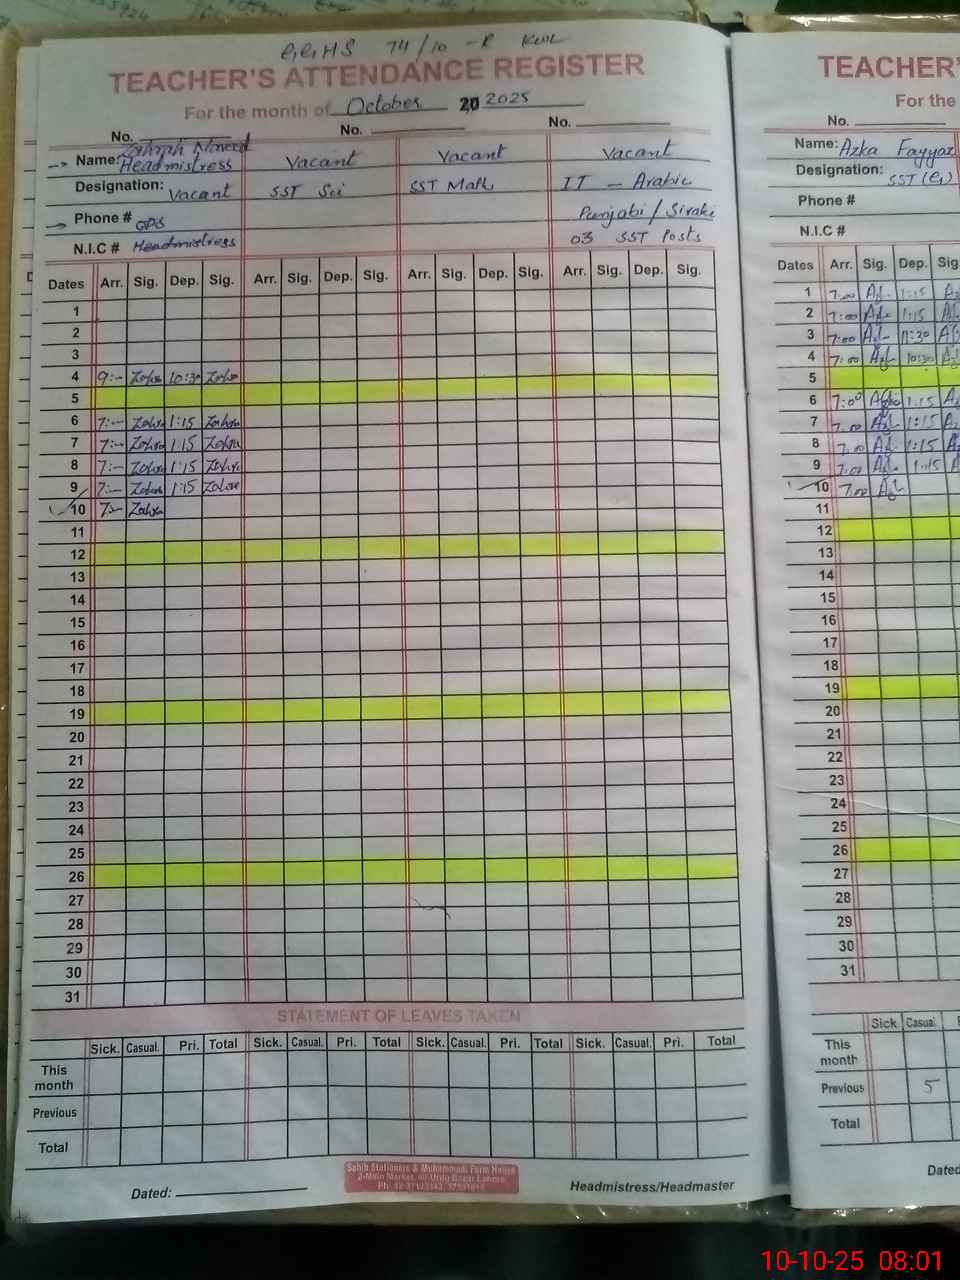 G.G.HS 74/10-R KWL
TEACHER'S ATTENDANCE REGISTER
For the month of October 20 2025
No. No. No.
Name: Zahrah Naveed Headmistress Vacant Vacant Vacant
Designation: Vacant SST Sci SST Math IT - Arabic
Phone # Punjabi / Siraki
N.I.C # Headmistress 03 SST Posts
Dates Arr. Sig. Dep. Sig. Arr. Sig. Dep. Sig. Arr. Sig. Dep. Sig. Arr. Sig. Dep. Sig.
1
2
3
4 9:- Zahra 10:30 Zahra
5
6 7:- Zahra 1:15 Zahra
7 7:- Zahra 1:15 Zahra
8 7:- Zahra 1:15 Zahra
9 7:- Zahra 1:15 Zahra
10 7:- Zahra
11
12
13
14
15
16
17
18
19
20
21
22
23
24
25
26
27
28
29
30
31
STATEMENT OF LEAVES TAKEN
Sick. Casual. Pri. Total Sick. Casual. Pri. Total Sick. Casual. Pri. Total Sick. Casual. Pri. Total
This month
Previous
Total
Dated:
Sabih Stationers & Muhammadi Form House
2-Main Market, 60-Urdu Bazar Lahore
Headmistress/Headmaster
TEACHER'
For the
No.
Name: Azka Fayyaz
Designation: SST (G)
Phone #
N.I.C #
Dates Arr. Sig. Dep. Sig
1 7:00 1:15
2 7:00 1:15
3 7:00 11:30
4 7:00 10:30
5
6 7:00 1:15
7 7:00 1:15
8 7:00 1:15
9 7:00 1:15
10 7:00
11
12
13
14
15
16
17
18
19
20
21
22
23
24
25
26
27
28
29
30
31
Sick Casual
This month
Previous 5
Total
Dated
10-10-25 08:01